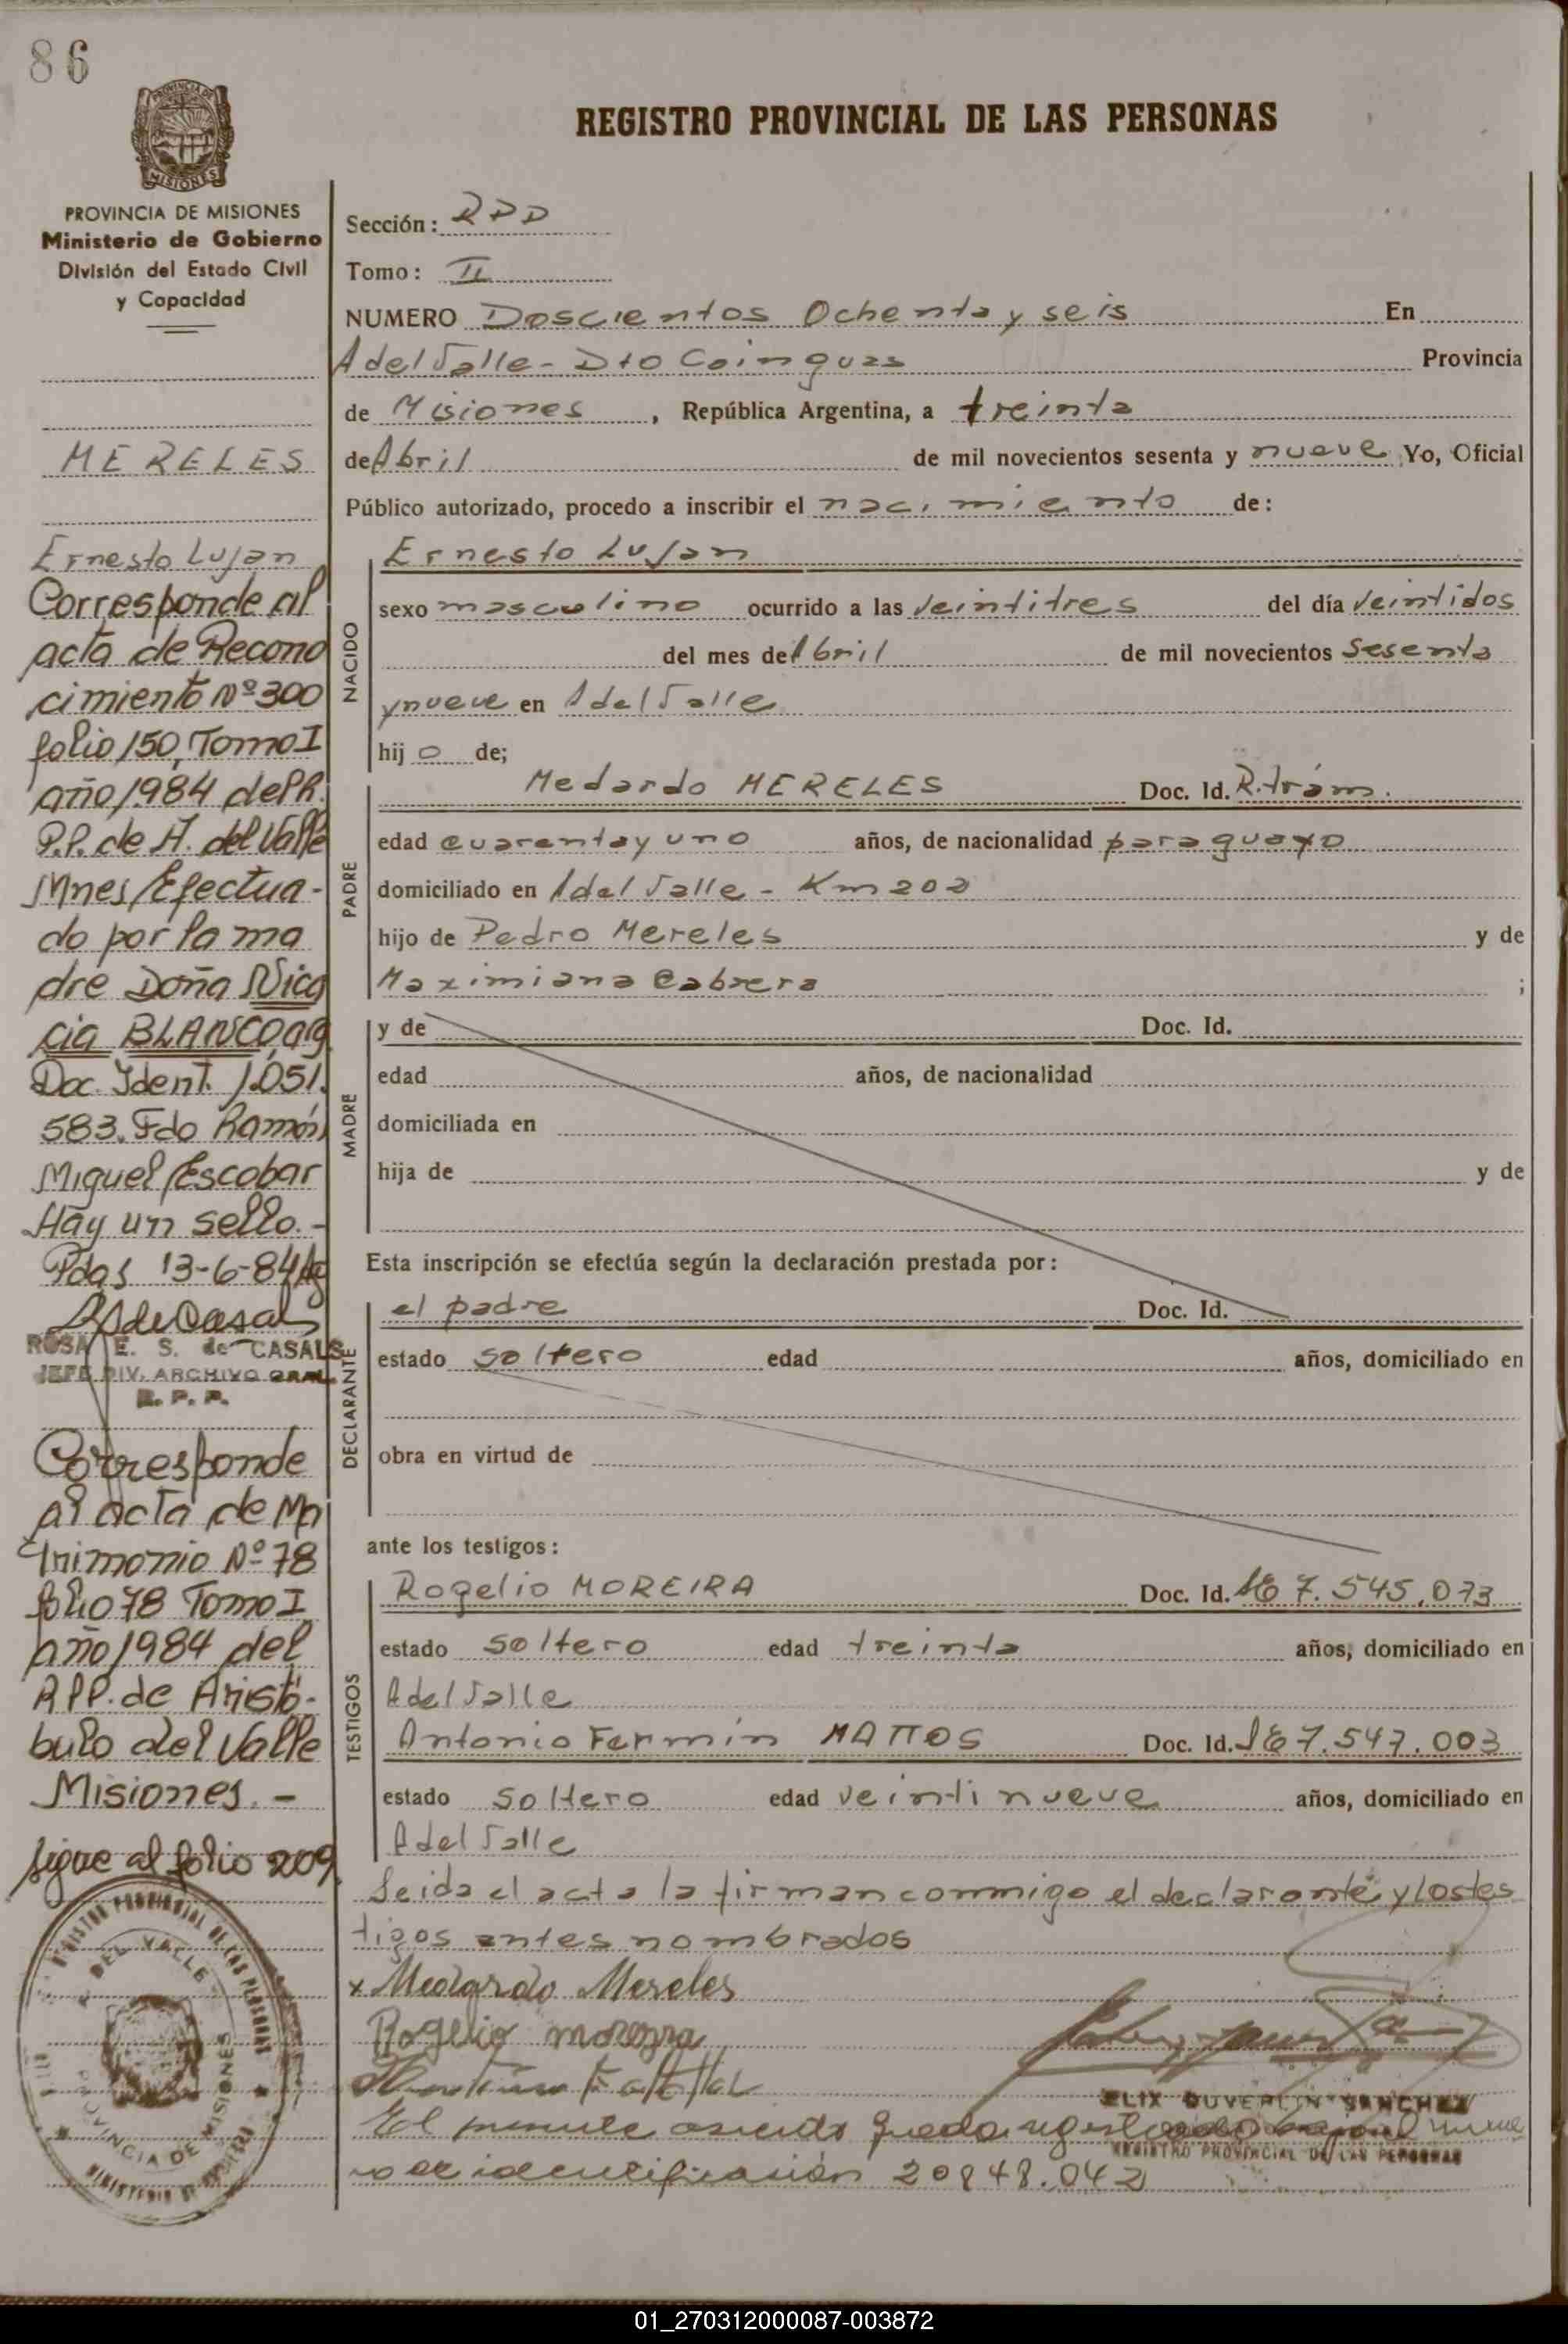 86
PROVINCIA DE MISIONES
Ministerio de Gobierno
División del Estado Civil
y Capacidad
MERELES
Ernesto Lujan
Corresponde al
acta de Recono
cimiento Nº 300
folio 150, Tomo I
año 1984 del R.
P.P. de A. del Valle
Mnes/Efectua-
do por la ma
dre Doña Nica
cia BLANCO, arg
Doc. Ident. 1.051.
583. Fdo Ramón
Miguel Escobar
Hay un sello.-
Pdas 13-6-84
ROSA E. S. de CASALS
JEFE DIV. ARCHIVO GRAL.
R. P. P.
Corresponde
al acta de Ma
trimonio Nº 78
folio 78 Tomo I
año 1984 del
RPP. de Aristó-
bulo del Valle
Misiones. -
sigue al folio 209
REGISTRO PROVINCIAL DE LAS PERSONAS
DEL VALLE
PROVINCIA DE MISIONES
REGISTRO PROVINCIAL DE LAS PERSONAS
Sección: RPP
Tomo: II
NUMERO Doscientos Ochenta y seis En
A del Valle - Dto Cainguas Provincia
de Misiones, República Argentina, a treinta
de Abril de mil novecientos sesenta y nueve Yo, Oficial
Público autorizado, procedo a inscribir el nacimiento de:
NACIDO
Ernesto Lujan
sexo masculino ocurrido a las veintitres del día veintidos
del mes de Abril de mil novecientos sesenta
y nueve en A del Valle
hijo de;
PADRE
Medardo MERELES Doc. Id. R. trám.
edad cuarenta y uno años, de nacionalidad paraguayo
domiciliado en A del Valle - Km 202
hijo de Pedro Mereles y de
Maximiana Cabrera ;
MADRE
y de Doc. Id.
edad años, de nacionalidad
domiciliada en
hija de y de
Esta inscripción se efectúa según la declaración prestada por:
DECLARANTE
el padre Doc. Id.
estado soltero edad años, domiciliado en
obra en virtud de
ante los testigos:
TESTIGOS
Rogelio MOREIRA Doc. Id. 7.545.073
estado soltero edad treinta años, domiciliado en
A del Valle
Antonio Fermin MATTOS Doc. Id. 7.547.003
estado soltero edad veintinueve años, domiciliado en
A del Valle
Leida el acta la firman conmigo el declarante y los tes
tigos antes nombrados
x Medardo Mereles
Rogelio
ELIX DUVERLIN SANCHEZ
REGISTRO PROVINCIAL DE LAS PERSONAS
El asiento queda registrado bajo el nume
ro de identificación 20848.042
01_270312000087-003872